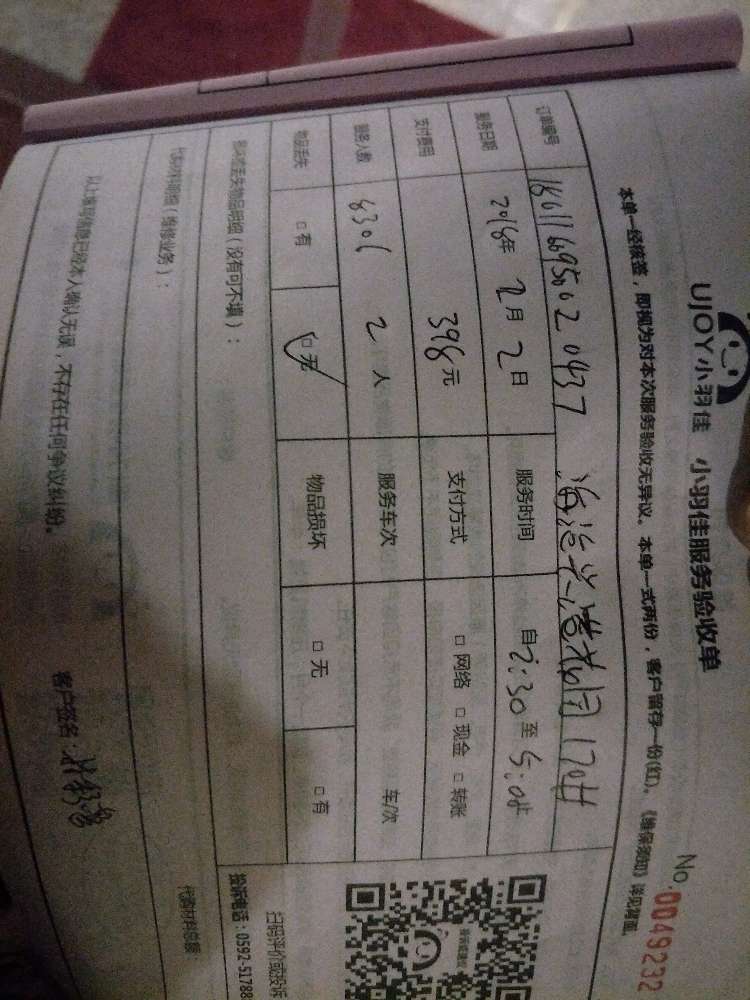 UJOY小羽佳 小羽佳服务验收单
No 0049232
本单一经核签，即视为对本次服务验收无异议。本单一式两份，客户留存一份(红)。《维保须知》详见背面。
订单编号 海沧 花园
服务日期 2018年 2月 2日 服务时间 自2:30至5:0
支付费用 398元 支付方式 □网络 □现金 □转账
服务人数 2人 服务车次 车/次
物品丢失 □有 □无 物品损坏 □无 □有
丢失物品明细（没有可不填）：
扫码评价或投诉
投诉电话：0592-51788
代购材料明细（维修业务）：
代购材料总额
以上填写信息已经本人确认无误，不存在任何争议纠纷。
客户签名：